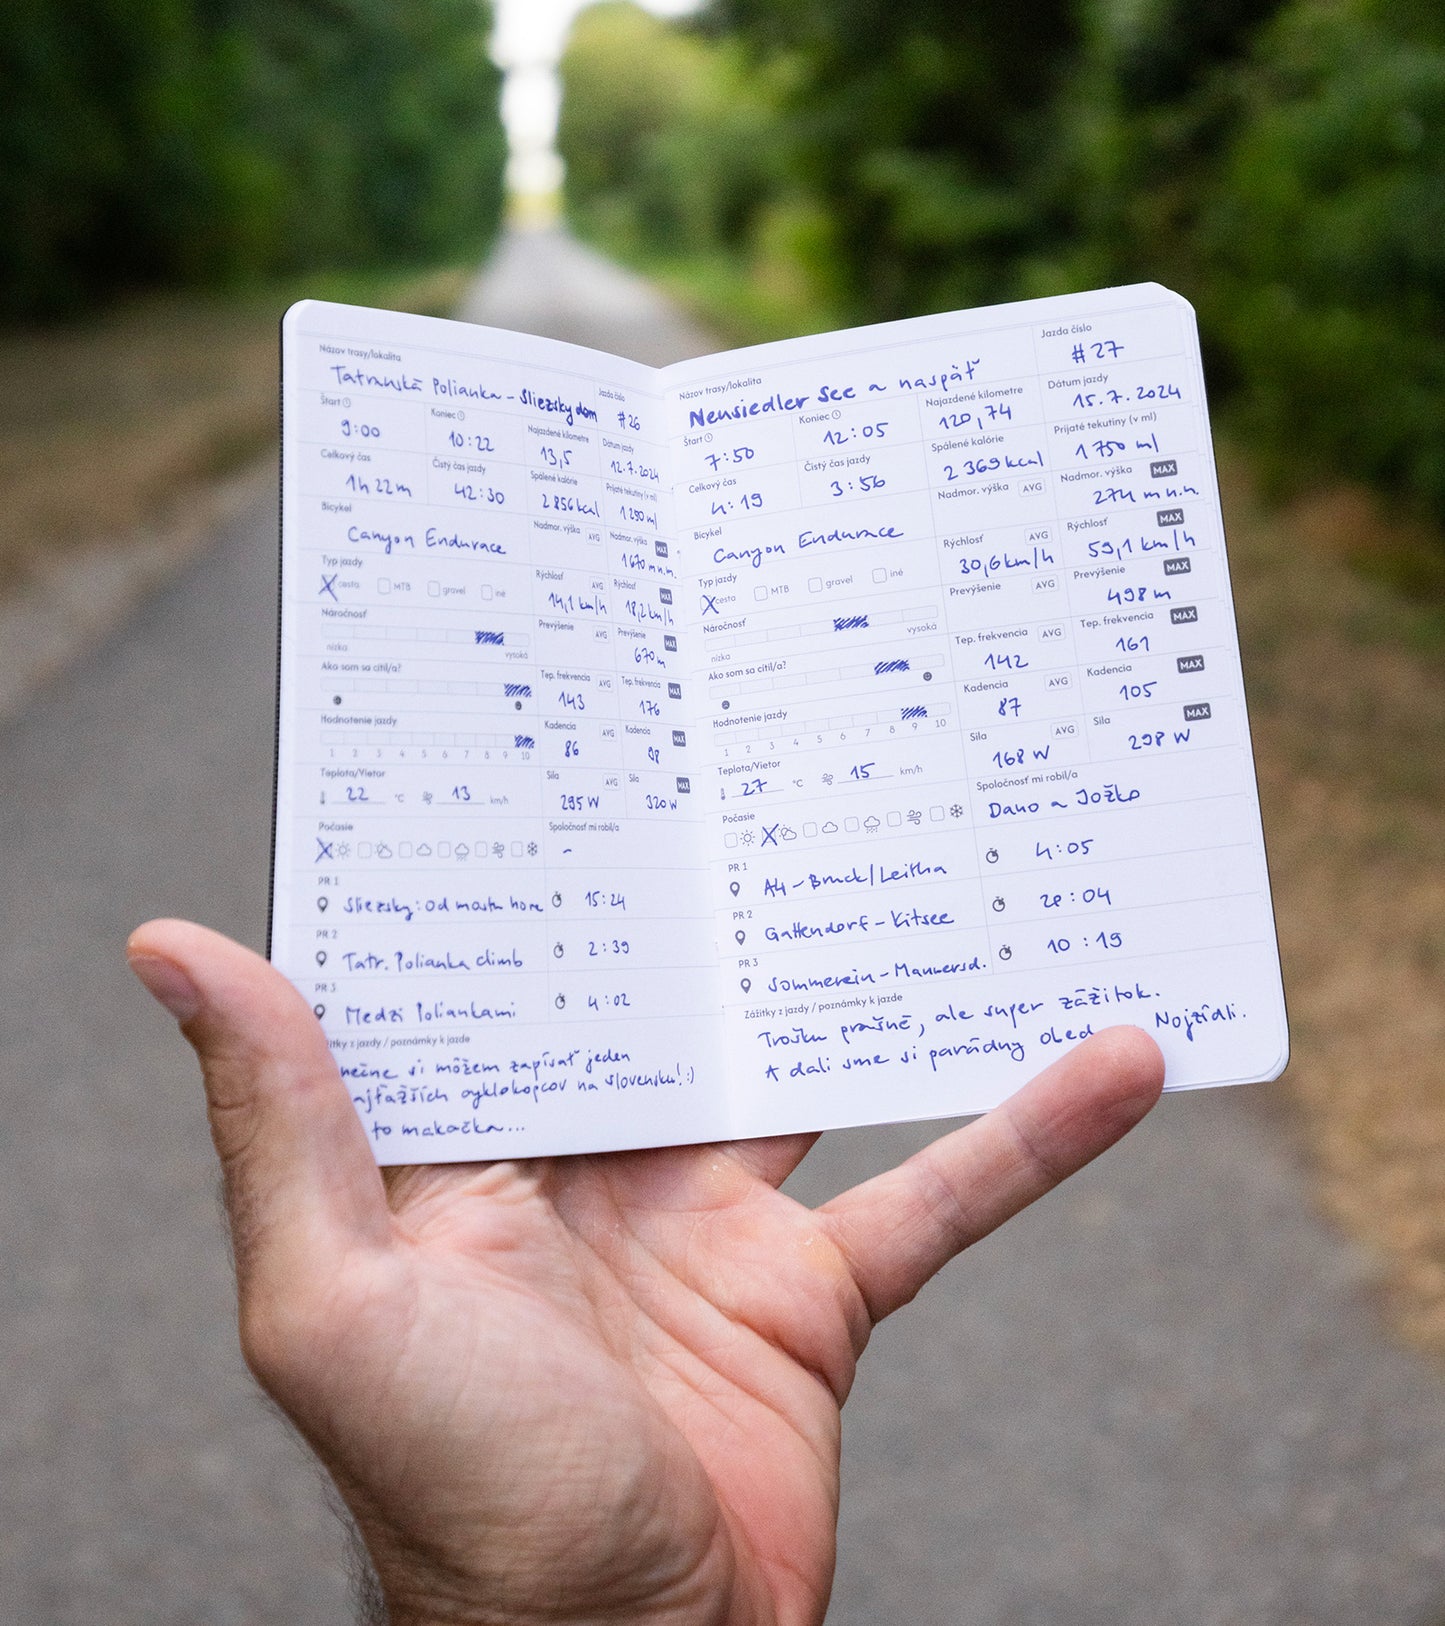 Názov trasy/lokalita
Tatranská Polianka - Sliezsky dom
Jazda číslo
#26
Štart
9:00
Koniec
10:22
Najazdené kilometre
13,5
Dátum jazdy
12.7.2024
Celkový čas
1h 22m
Čistý čas jazdy
42:30
Spálené kalórie
2 856 kcal
Prijaté tekutiny (v ml)
1 250 ml
Bicykel
Canyon Endurace
Nadmor. výška AVG
Nadmor. výška MAX
1670 m n.m.
Typ jazdy
X cesta MTB gravel iné
Rýchlosť AVG
14,1 km/h
Rýchlosť MAX
18,2 km/h
Náročnosť
nízka vysoká
Prevýšenie AVG
Prevýšenie MAX
670 m
Ako som sa cítil/a?
Tep. frekvencia AVG
143
Tep. frekvencia MAX
176
Hodnotenie jazdy
1 2 3 4 5 6 7 8 9 10
Kadencia AVG
86
Kadencia MAX
98
Teplota/Vietor
22 °C 13 km/h
Sila AVG
295 W
Sila MAX
320 W
Počasie
X
Spoločnosť mi robil/a
-
PR 1
Sliezsky: od mostu hore 15:24
PR 2
Tatr. Polianka climb 2:39
PR 3
Medzi Poliankami 4:02
žitky z jazdy / poznámky k jazde
nečne si môžem zapísať jeden
ajťažších cyklokopcov na Slovensku! :)
to makačka...
Názov trasy/lokalita
Neusiedler See a naspäť
Jazda číslo
#27
Štart
7:50
Koniec
12:05
Najazdené kilometre
120,74
Dátum jazdy
15.7.2024
Celkový čas
4:19
Čistý čas jazdy
3:56
Spálené kalórie
2 369 kcal
Prijaté tekutiny (v ml)
1 750 ml
Bicykel
Canyon Endurace
Nadmor. výška AVG
Nadmor. výška MAX
274 m n.m.
Typ jazdy
X cesta MTB gravel iné
Rýchlosť AVG
30,6 km/h
Rýchlosť MAX
59,1 km/h
Náročnosť
nízka vysoká
Prevýšenie AVG
Prevýšenie MAX
498 m
Ako som sa cítil/a?
Tep. frekvencia AVG
142
Tep. frekvencia MAX
161
Hodnotenie jazdy
1 2 3 4 5 6 7 8 9 10
Kadencia AVG
87
Kadencia MAX
105
Teplota/Vietor
27 °C 15 km/h
Sila AVG
168 W
Sila MAX
298 W
Počasie
X
Spoločnosť mi robil/a
Dano a Jožko
PR 1
A4 - Bruck/Leitha 4:05
PR 2
Gattendorf - Kitsee :04
PR 3
Sommerein - Mannersd. 10:19
Zážitky z jazdy / poznámky k jazde
Trošku prašné, ale super zážitok.
A dali sme si parádny obed Nojzídli.